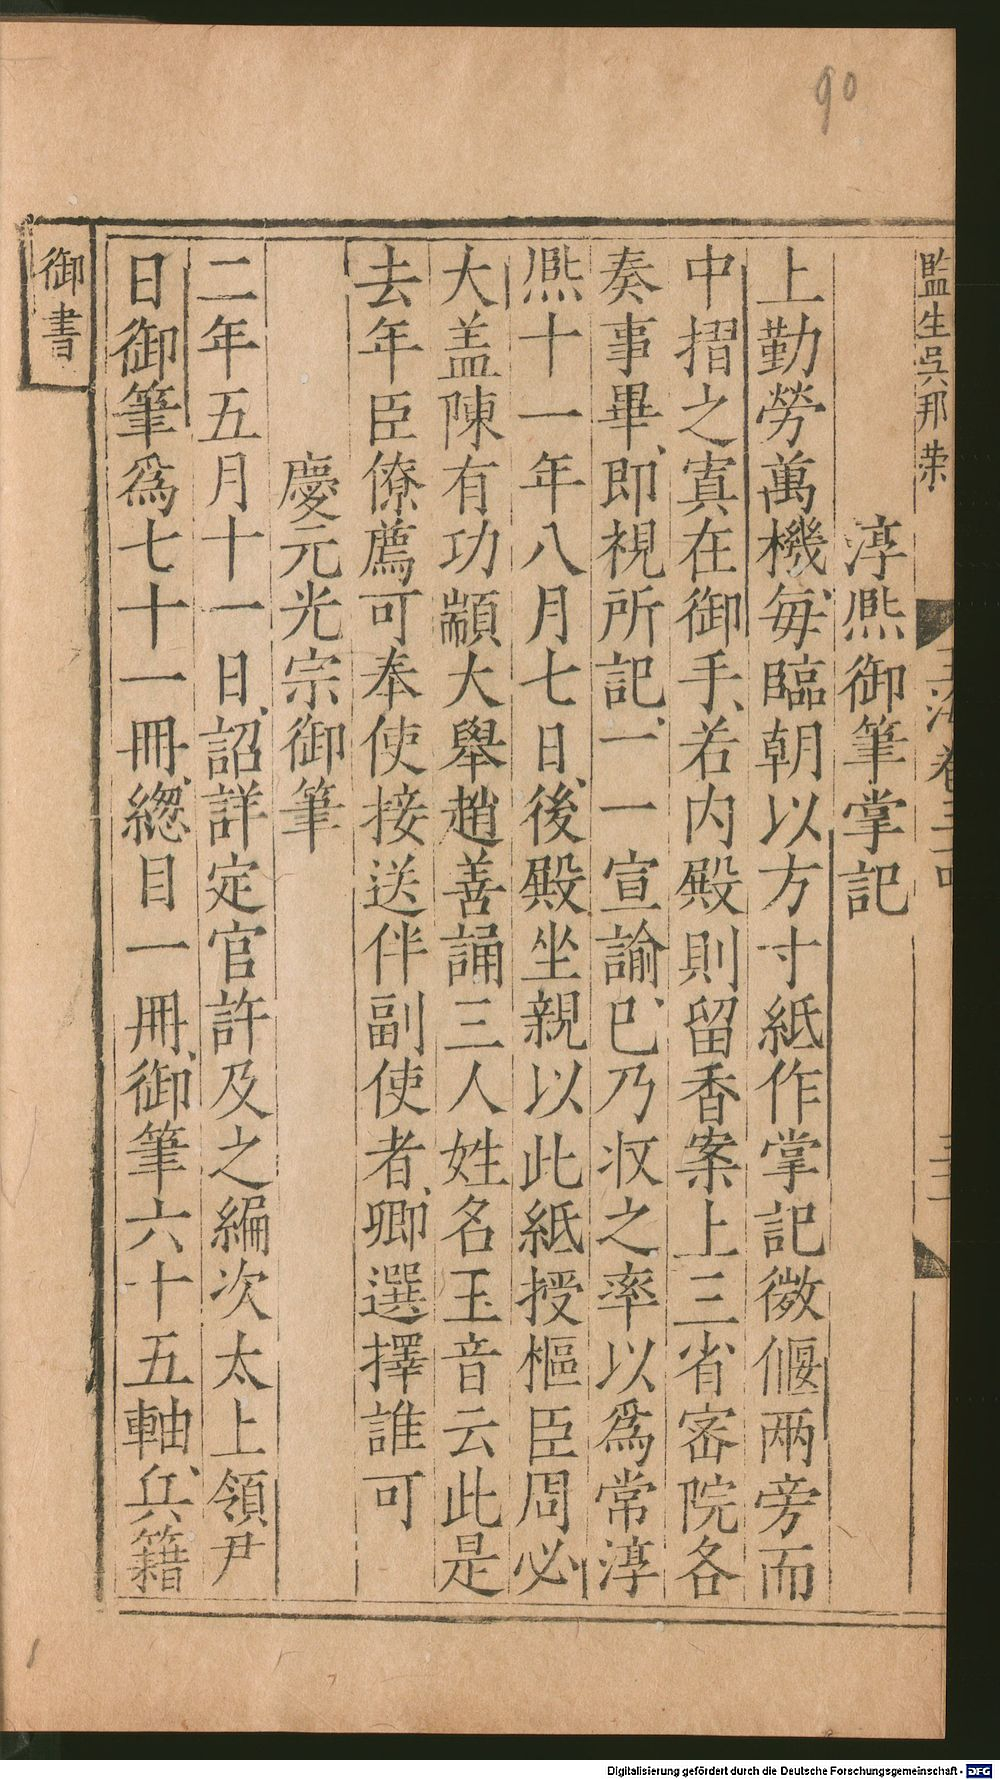 90
監生吳那
玉海卷三
淳熈御筆掌記
上勤勞萬機每臨朝以方寸紙作掌記微偃兩旁而
中摺之寘在御手若内殿則留香案上三省宻院各
奏事畢即視所記一一宣諭已乃収之率以爲常淳
熈十一年八月七日後殿坐親以此紙授樞臣周必
大盖陳有功顓大舉趙善誦三人姓名玉音云此是
去年臣僚薦可奉使接送伴副使者卿選擇誰可
慶元光宗御筆
二年五月十一日詔詳定官許及之編次太上領尹
日御筆爲七十一冊緫目一冊御筆六十五軸兵籍
御書
Digitalisierung gefördert durch die Deutsche Forschungsgemeinschaft - DFG